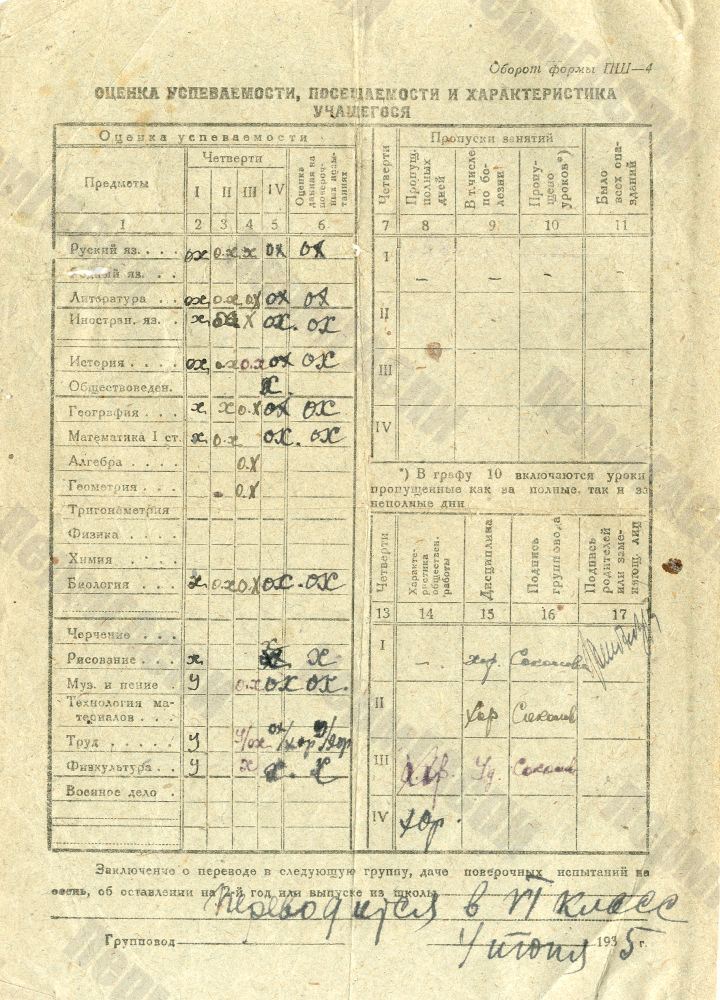 Оборот формы ПШ—4
ОЦЕНКА УСПЕВАЕМОСТИ, ПОСЕЩАЕМОСТИ И ХАРАКТЕРИСТИКА
УЧАЩЕГОСЯ
Оценка успеваемости
Предметы
Четверти
I II III IV
Оценка данная на поверочных испытаниях
1 2 3 4 5 6
Руский яз. . . . ох о.х х ох ох
Родный яз. . .
Литература . . ох о.х ох ох ох
Иностран. яз. . х х ох. ох
История . . . . ох о.х о.х ох ох
Обществоведен. х.
География . . . х х о.х ох ох
Математика I ст. х о.х ох. ох
Алгебра . . . . о.х
Геометрия . . . о.х
Тригонометрия
Физика . . . .
Химия . . . . .
Биология . . . х о.х о.х ох. ох
Черчение . . .
Рисование . . . х х
Муз. и пение . у о.х ох ох.
Технология ма-
териалов . . .
Труд . . . . . у у/ох ох/хор у/хор
Физкультура . . у х х. х
Военное дело .
Пропуски занятий
Четверти
Пропущ. полных дней
В т. числе по болезни
Пропущено уроков*)
Было всех опозданий
7 8 9 10 11
I – – –
II
III
IV
*) В графу 10 включаются уроки
пропущенные как за полные, так и за
неполные дни
Четверти
Характеристика обществен. работы
Дисциплина
Подпись групповода
Подпись родителей или заменяющ. лиц
13 14 15 16 17
I – хор. Соколова
II хор Соколов
III хор. Уд. Соколов
IV хор.
Заключение о переводе в следующую группу, даче поверочных испытаний на
осень, об оставлении на 2-й год или выпуске из школы
Переводится в VI класс
Групповод
4 июня 1935 г.